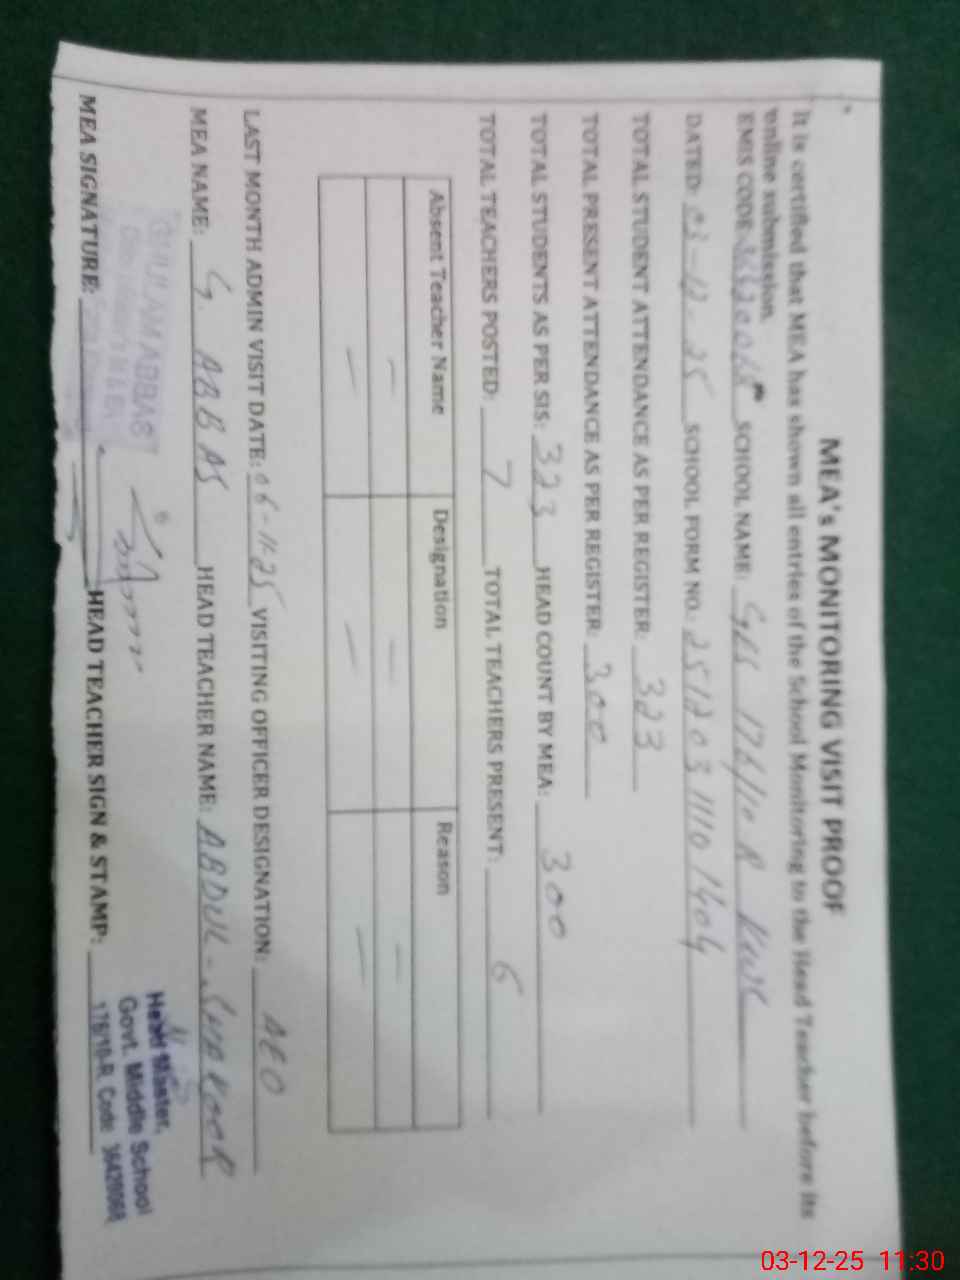 MEA's MONITORING VISIT PROOF
It is certified that MEA has shown all entries of the School Monitoring to the Head Teacher before its
online submission.
EMIS CODE: SCHOOL NAME: 176/10 R
DATED: 03-12-25 SCHOOL FORM NO.: 25120311101404
TOTAL STUDENT ATTENDANCE AS PER REGISTER: 323
TOTAL PRESENT ATTENDANCE AS PER REGISTER: 300
TOTAL STUDENTS AS PER SIS: 323 HEAD COUNT BY MEA: 300
TOTAL TEACHERS POSTED: 7 TOTAL TEACHERS PRESENT: 6
Absent Teacher Name Designation Reason
— — —
— — —
LAST MONTH ADMIN VISIT DATE: 06-11-25 VISITING OFFICER DESIGNATION: AEO
MEA NAME: G. ABBAS HEAD TEACHER NAME: ABDUL-SHAKOOR
GHULAM ABBAS
MEA SIGNATURE: HEAD TEACHER SIGN & STAMP:
Head Master,
Govt. Middle School
176/10-R Code
03-12-25 11:30